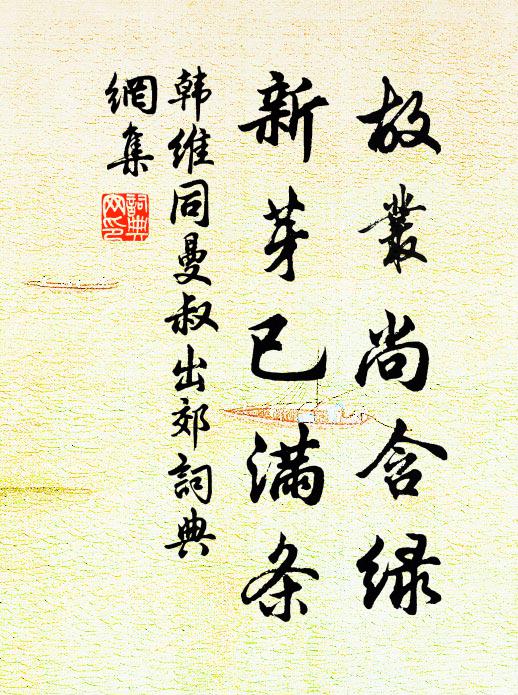 故叢尚含绿
新芽已满条
韩维同曼叔出郊詞典
網集
詞典
网印